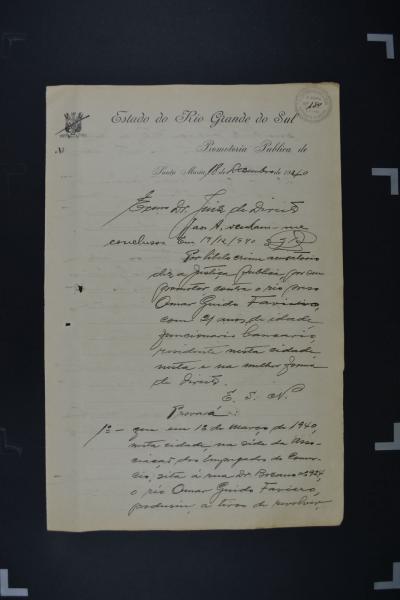 Estado do Rio Grande do Sul
Promotoria Publica de
Nº
Santa Maria, 18 de Dezembro de 1940
Exmo. Dr. Juiz de Direito
A. venham-me
conclusos. Em 19/12/940
Por libelo crime acusatorio
diz a Justiça Publica, por seu
promotor contra o réu preso
Omar Guido
com 21 anos de idade
funcionario bancario,
residente nesta cidade
nesta e na melhor forma
de direito.
E. S. N.
Provará:
1º - que em 12 de março de 1940,
nesta cidade, na séde da Asso-
ciação dos Empregados do Comer-
cio, sita á rua Dr. Bozano
o réu Omar Guido
produziu, a tiros de revolver,